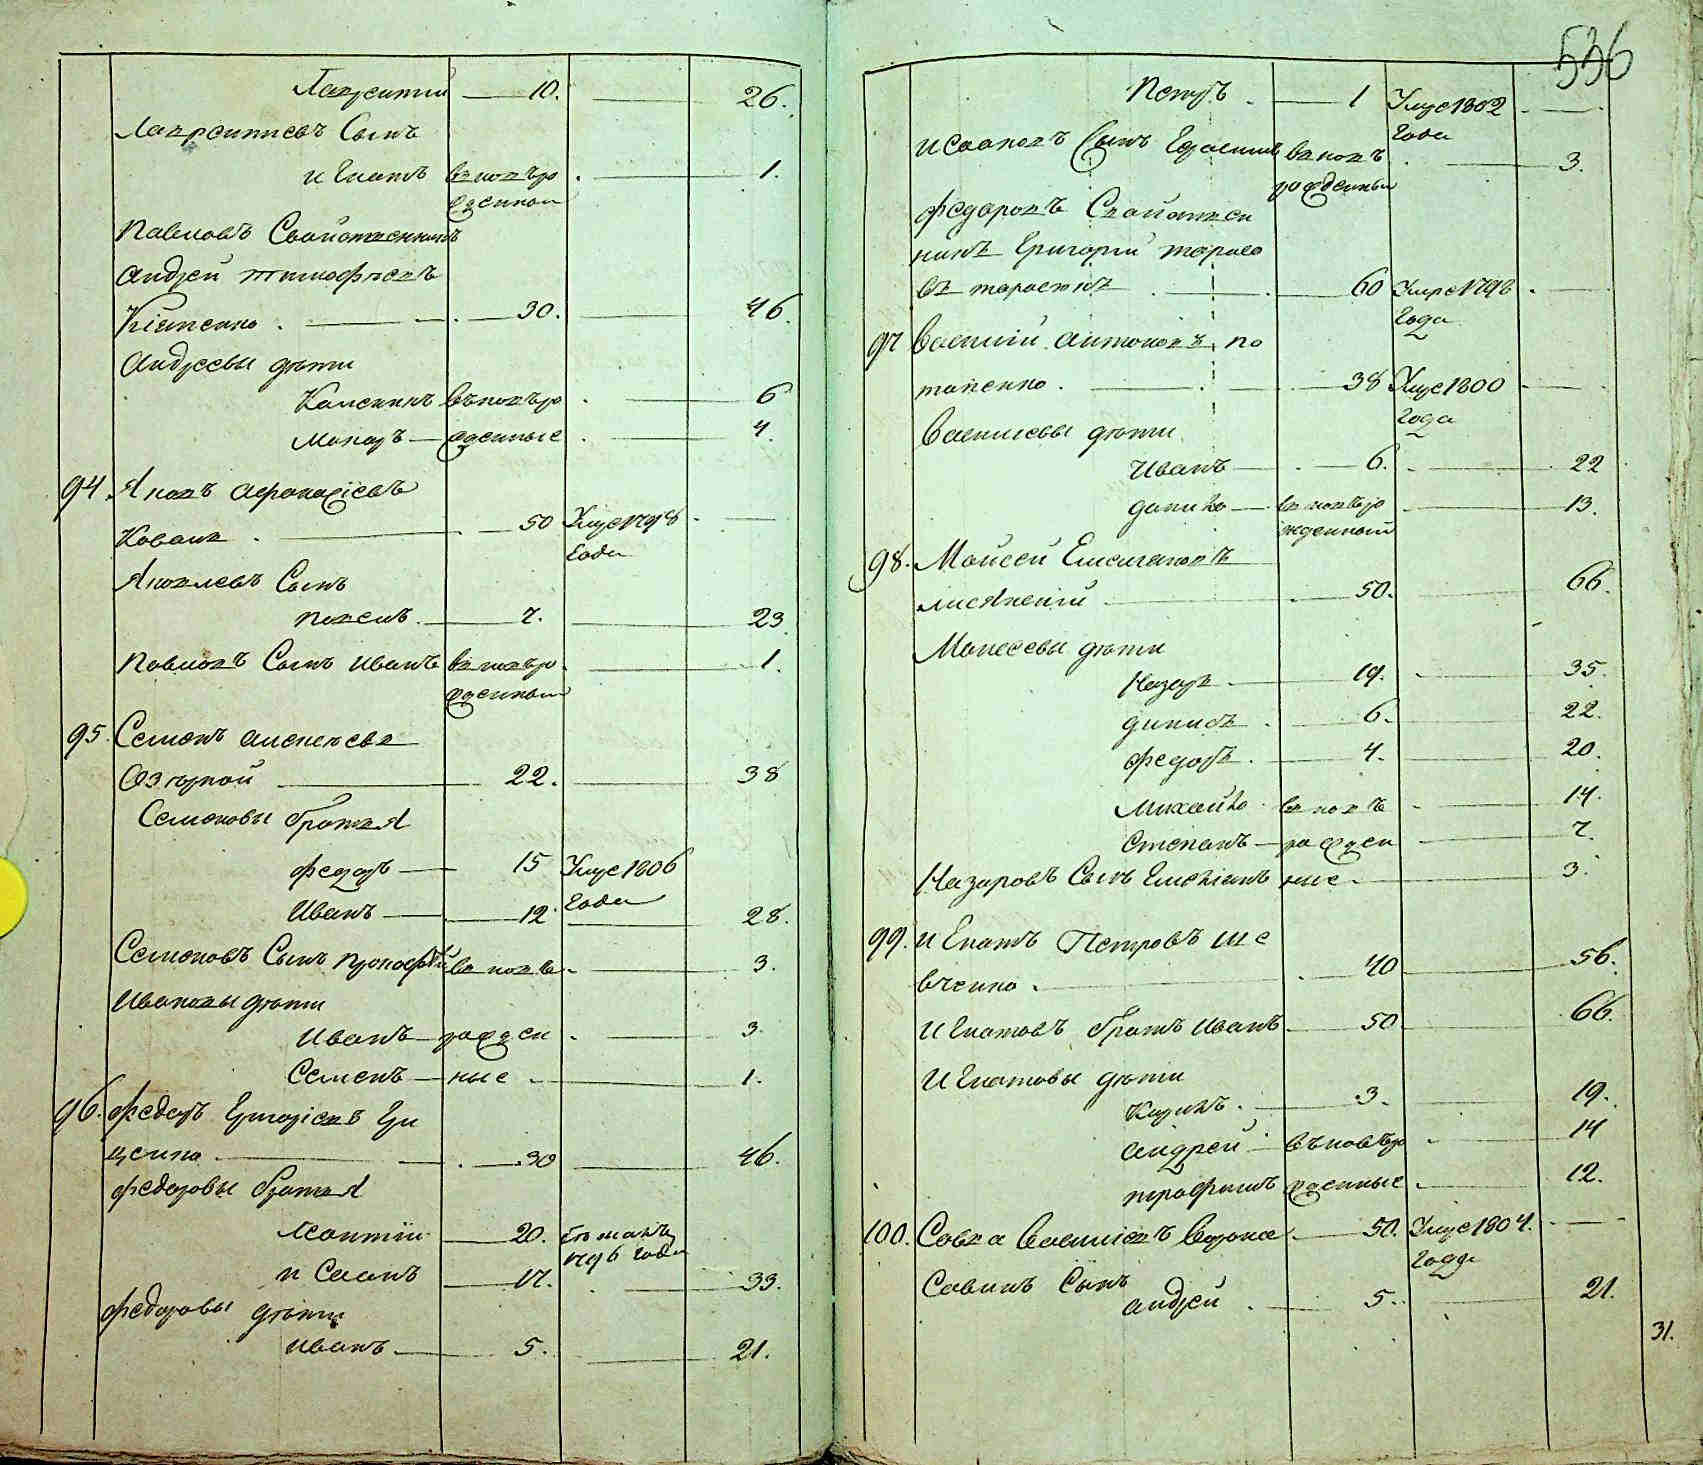 536
Лаврентий 10. 26.
Лаврентиевъ Сынъ
Игнатъ вновь ро 1.
жденной
Павловъ Свойственникъ
Андрей Тимофѣевъ
Кіяшенко 30. 46.
Андреевы дѣти
Калѣникъ вновь ро 6
Макаръ жденные 4.
94. Яковъ Афонасіевъ
Коваль 50 Умре 1798
Года
Яковлевъ Сынъ
7. 23
Павловъ Сынъ Иванъ вновь ро 1.
жденный
95. Семенъ Алексѣевъ
Озѣрной 22. 38
Семеновы братья
Федоръ 15 Умре 1806
Года
Иванъ 12 28.
Семеновъ Сынъ Прокофѣй вновь 3.
Ивановы дѣти
Иванъ рожден 3.
Семенъ ные 1.
96. Федоръ Григоріевъ Гри
ценко 30 46.
Федоровы братья
Леонтій 20. бѣжалъ
1796 Года
и Саанъ 17. 33.
Федоровы дѣти
Иванъ 5. 21.
Петръ 1 Умре 1802
Года
Исааковъ Сынъ Герасимъ вновь 3.
рожденный
Федоровъ Свойствен
никъ Григорій Тарасо
въ 60 Умре 1798
Года
97 Василій Антоновъ По
тапенко 38 Умре 1800
Года
Василіевы дѣти
Иванъ 6. 22
Данило вновь ро 13.
жденной
98. Мойсей Емельяновъ
Лисянскій 50. 66.
Моисеевы дѣти
Назаръ 19. 35.
Денисъ 6. 22.
Федоръ 4. 20.
Михайло вновь 14.
Степанъ рожден 7.
Назаровъ Сынъ Емельянъ ные 3.
99. Игнатъ Петровъ Ше
вченко 40 56.
Игнатовъ братъ Иванъ 50 66.
Игнатовы дѣти
Кирикъ 3. 19.
Андрей вновь ро 14
Трофимъ жденные 12.
100. Савва Василіевъ Ворона 50. Умре 1804.
Года
Савинъ Сынъ
Андрей 5. 21.
31.